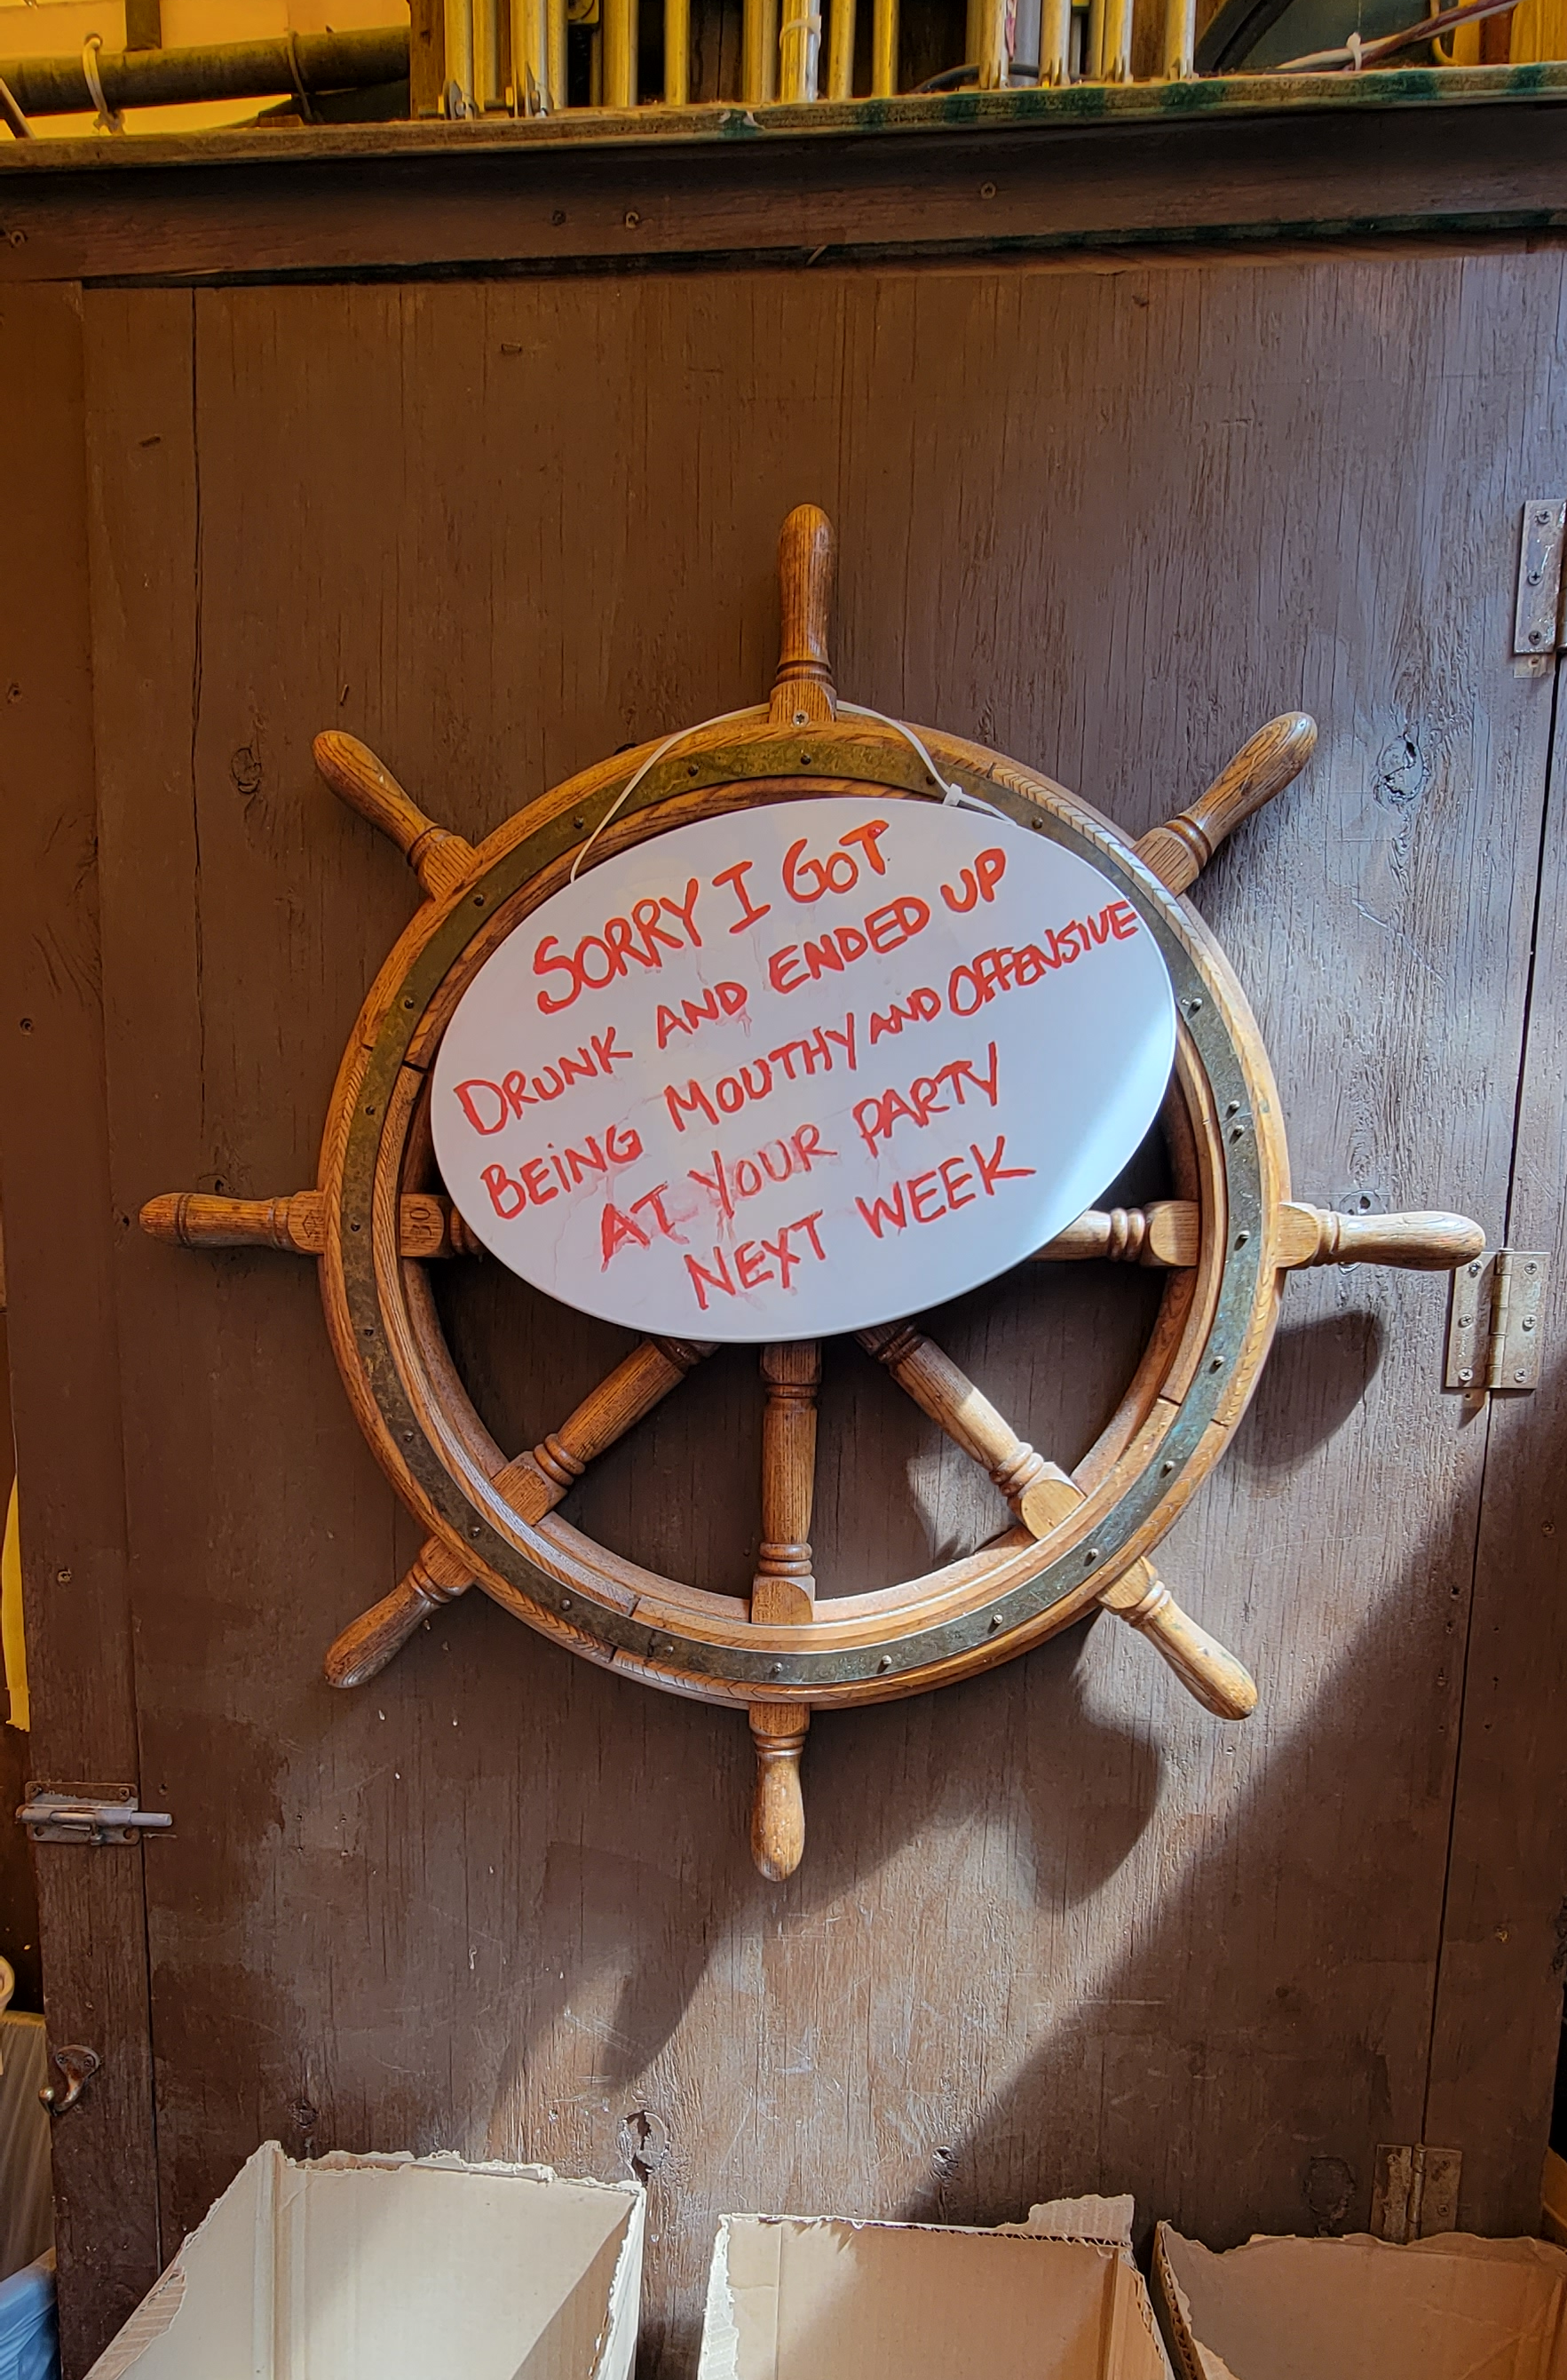 SORRY I GOT
DRUNK AND ENDED UP
BEING MOUTHY AND OFFENSIVE
AT YOUR PARTY
NEXT WEEK